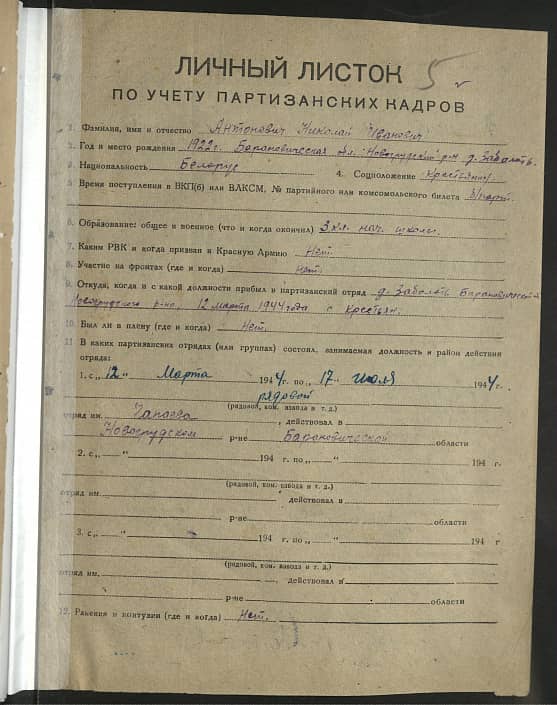 ЛИЧНЫЙ ЛИСТОК 5
ПО УЧЕТУ ПАРТИЗАНСКИХ КАДРОВ
1. Фамилия, имя и отчество Антонович Николай Иванович
2. Год и место рождения 1922г. Барановическая обл. Новогрудский р-н д. Заболоть
3. Национальность Белорус 4. Соцположение крестьянин
5. Время поступления в ВКП(б) или ВЛКСМ, № партийного или комсомольского билета б/парт.
6. Образование: общее и военное (что и когда окончил) 3 кл. нач. школы.
7. Каким РВК и когда призван в Красную Армию Нет.
8. Участие на фронтах (где и когда) нет.
9. Откуда, когда и с какой должности прибыл в партизанский отряд д. Заболоть Барановической
Новогрудского р-на, 12 марта 1944 года с крестьян.
10. Был ли в плену (где и когда) Нет.
11. В каких партизанских отрядах (или группах) состоял, занимаемая должность и район действия
отряда:
1. с „12" Марта 1944 г. по „17" июля 1944 г.
рядовой
(рядовой, ком. взвода и т. д.)
отряд им. Чапаева, действовал в
Новогрудском р-не Барановической области
2. с „ " 194 г. по „ " 194 г.
(рядовой, ком. взвода и т. д.)
отряд им. действовал в
р-не области
3. с „ " 194 г. по „ " 194 г
(рядовой, ком. взвода и т. д.)
отряд им. действовал в
р-не области
12. Ранения и контузии (где и когда) Нет.